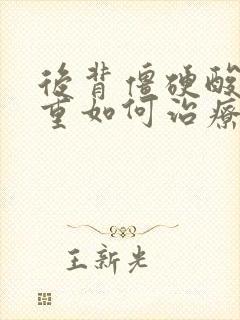 後背僵硬酸
重如何治療
王新光